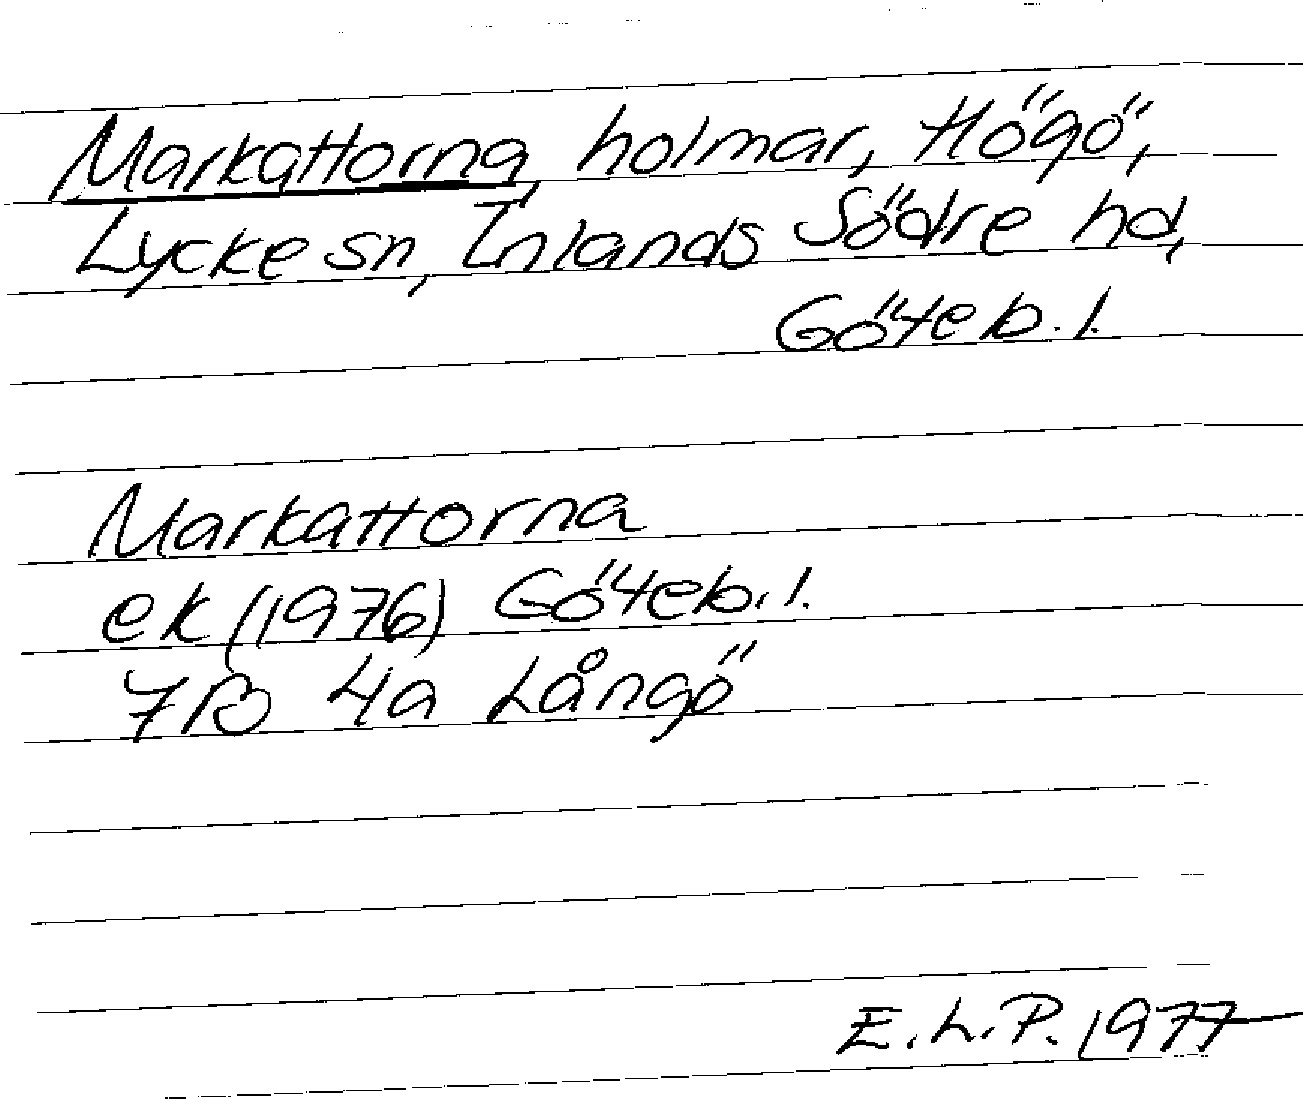 Markattorna, holmar, Högö,
Lycke sn, Inlands Södre hd,
Göteb. l.
Markattorna
ek (1976) Göteb. l.
7B 4a Långö
E. L. P. 1977